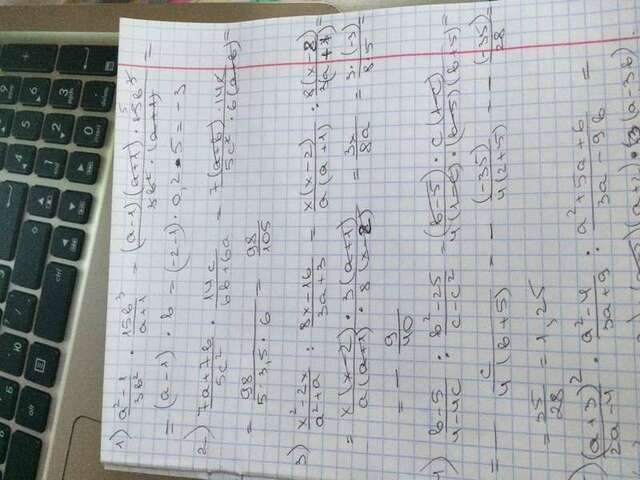 1) (a²-1)/(3b²) · (15b³)/(a+1) = ((a-1)(a+1) · 15b³)/(3b² · (a+1)) =
= (a-1) · b = (-2-1) · 0,2 · 5 = -3
2) (7a+7b)/(5c²) · (14c)/(6b+6a) = (7(a+b) · 14c)/(5c² · 6(a+b)) =
= 98/(5·3,5·6) = 98/105
3) (x²-2x)/(a²+a) : (8x-16)/(3a+3) = (x(x-2))/(a(a+1)) : (8(x-2))/(3(a+1)) =
= (x(x-2) · 3(a+1))/(a(a+1) · 8(x-2)) = 3x/8a = (3·(3))/(8·5) =
= - 9/40
4) (b-5)/(4-4c) : (b²-25)/(c-c²) = ((b-5) · c(1-c))/(4(1-c) · (b-5)(b+5)) =
= c/(4(b+5)) = - (-35)/(4(2+5)) = - (-35)/28 =
= 35/28 = 1,25
(a+3)²/(2a-4) · (a²-4)/(3a+9) : (a²+5a+6)/(3a-9b) =